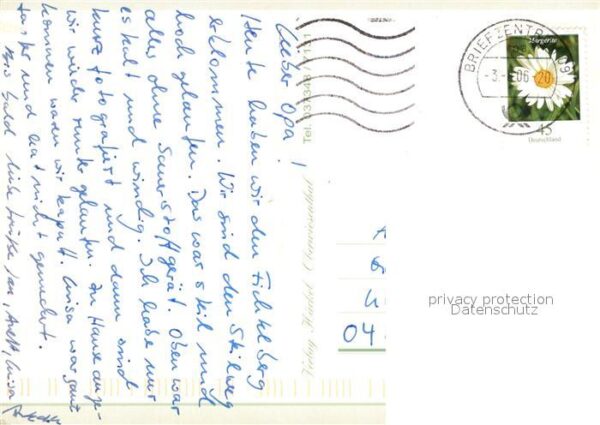 Lieber Opa!
Heute haben wir den Fichtelberg
erklommen. Wir sind den Skiweg
hoch gelaufen. Das war steil und
alles ohne Sauerstoffgerät. Oben war
es kalt und windig. Ich habe nur
kurz fotografiert und dann sind
wir wieder runter gelaufen. Zu Hause ange-
kommen waren wir kaputt. Luisa war ganz
tapfer und hat nicht gemeckert.
Bis bald liebe Grüße Luisa
Tel.
04
BRIEFZENTRUM 09
-3.-06-20
Margerite
45
Deutschland
privacy protection
Datenschutz